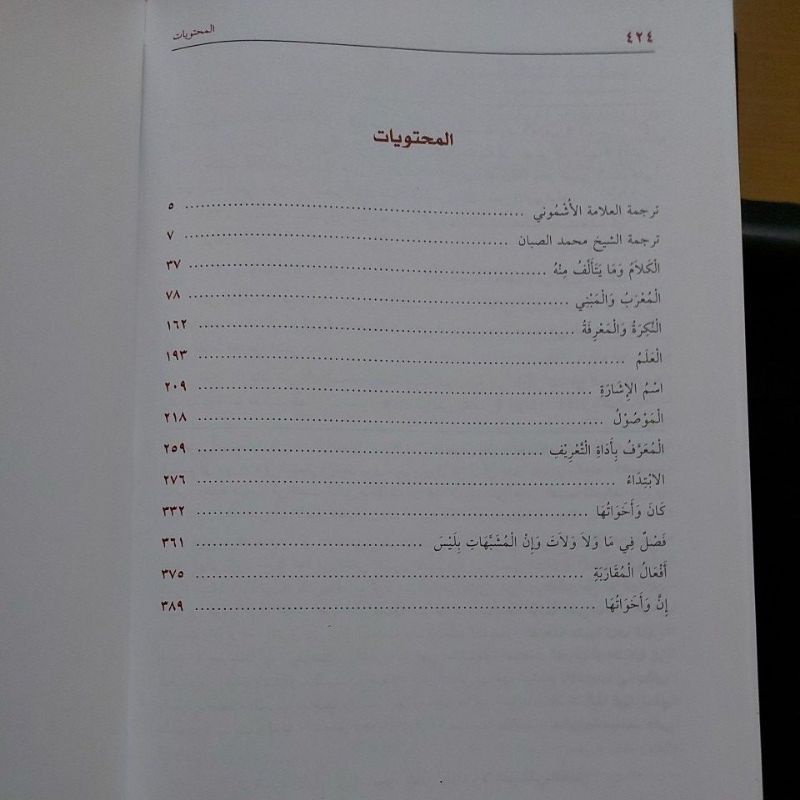 ٤٢٤ المحتويات
المحتويات
ترجمة العلامة الأشموني ٥
ترجمة الشيخ محمد الصبان ٧
الْكَلاَمُ وَمَا يَتَأَلَّفُ مِنْهُ ٣٧
الْمُعْرَبُ وَالْمَبْنِي ٧٨
النَّكِرَةُ وَالْمَعْرِفَةُ ١٦٢
الْعَلَمُ ١٩٣
اسْمُ الإِشَارَةِ ٢٠٩
الْمَوْصُوْلُ ٢١٨
الْمُعَرَّفُ بِأَدَاةِ التَّعْرِيْفِ ٢٥٩
الابْتِدَاءُ ٢٧٦
كَانَ وَأَخَوَاتُهَا ٣٣٢
فَصْلٌ فِي مَا وَلاَ وَلاَتَ وَإِنْ الْمُشَبَّهَاتِ بِلَيْسَ ٣٦١
أَفْعَالُ الْمُقَارَبَةِ ٣٧٥
إِنَّ وَأَخَوَاتُهَا ٣٨٩